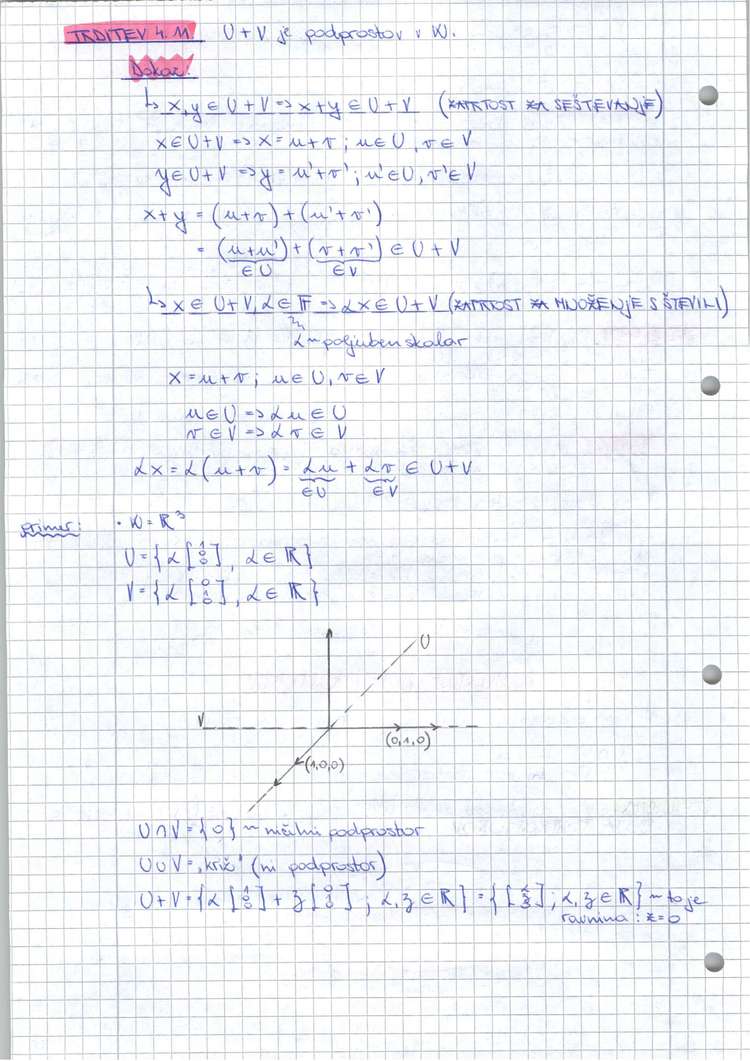 TRDITEV 4.11 U+V je podprostor v W.
Dokaz:
↳ x,y ∈ U+V => x+y ∈ U+V (ZAPRTOST ZA SEŠTEVANJE)
x ∈ U+V => x = u+v ; u ∈ U, v ∈ V
y ∈ U+V => y = u'+v' ; u' ∈ U, v' ∈ V
x+y = (u+v) + (u'+v')
= (u+u') + (v+v') ∈ U+V
∈ U ∈ V
↳ x ∈ U+V, α ∈ F => αx ∈ U+V (ZAPRTOST ZA MNOŽENJE S ŠTEVILI)
α ~ poljuben skalar
x = u+v ; u ∈ U, v ∈ V
u ∈ U => αu ∈ U
v ∈ V => αv ∈ V
αx = α(u+v) = αu + αv ∈ U+V
∈U ∈V
primer: • W = R³
U = {α [1 0 0], α ∈ R}
V = {α [0 1 0], α ∈ R}
U
V
(0,1,0)
(1,0,0)
U∩V = {0} ~ ničelni podprostor
U∪V = „križ" (ni podprostor)
U+V = {α [1 0 0] + β [0 1 0] ; α, β ∈ R} = {[α β 0] ; α, β ∈ R} ~ to je
ravnina : z=0